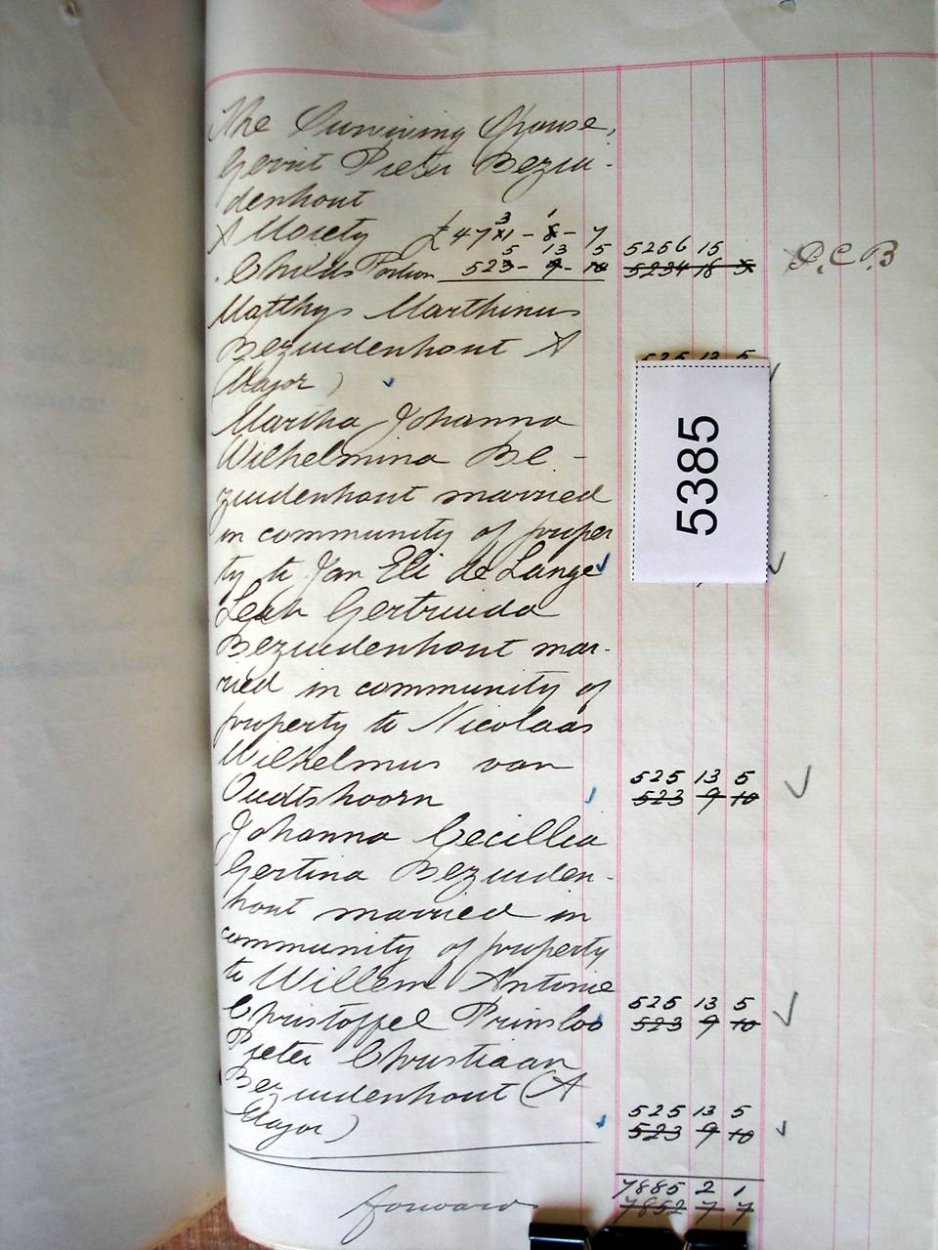 The Surviving Spouse,
Gerrit Pieter Bezui-
denhout
3 1
A Moiety £4711-8-7
5 13 5 5256 15
Childs Portion 523-9-10 5234 18 5 P.C.B
Matthys Marthinus
Bezuidenhout A 525 13 5
(Major)
Martha Johanna
Wilhelmina Be-
zuidenhout married
in community of proper
ty to Jan Eli de Lange
Leah Gertruida
Bezuidenhout mar-
ried in community of
property to Nicolaas
Wilhelmus van
525 13 5
Oudtshoorn 523 9 10
Johanna Cecillia
Gertina Bezuiden-
hout married in
community of property
to Willem Antonie
525 13 5
Christoffel Prinsloo 523 9 10
Pieter Christiaan
Bezuidenhout (A
525 13 5
Major) 523 9 10
7885 2 1
forward 7852 7 7
5385